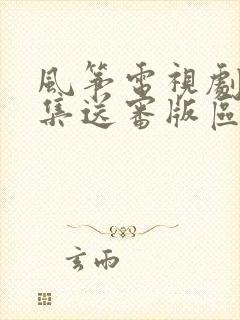 風箏電視劇
集送審版區
玄雨